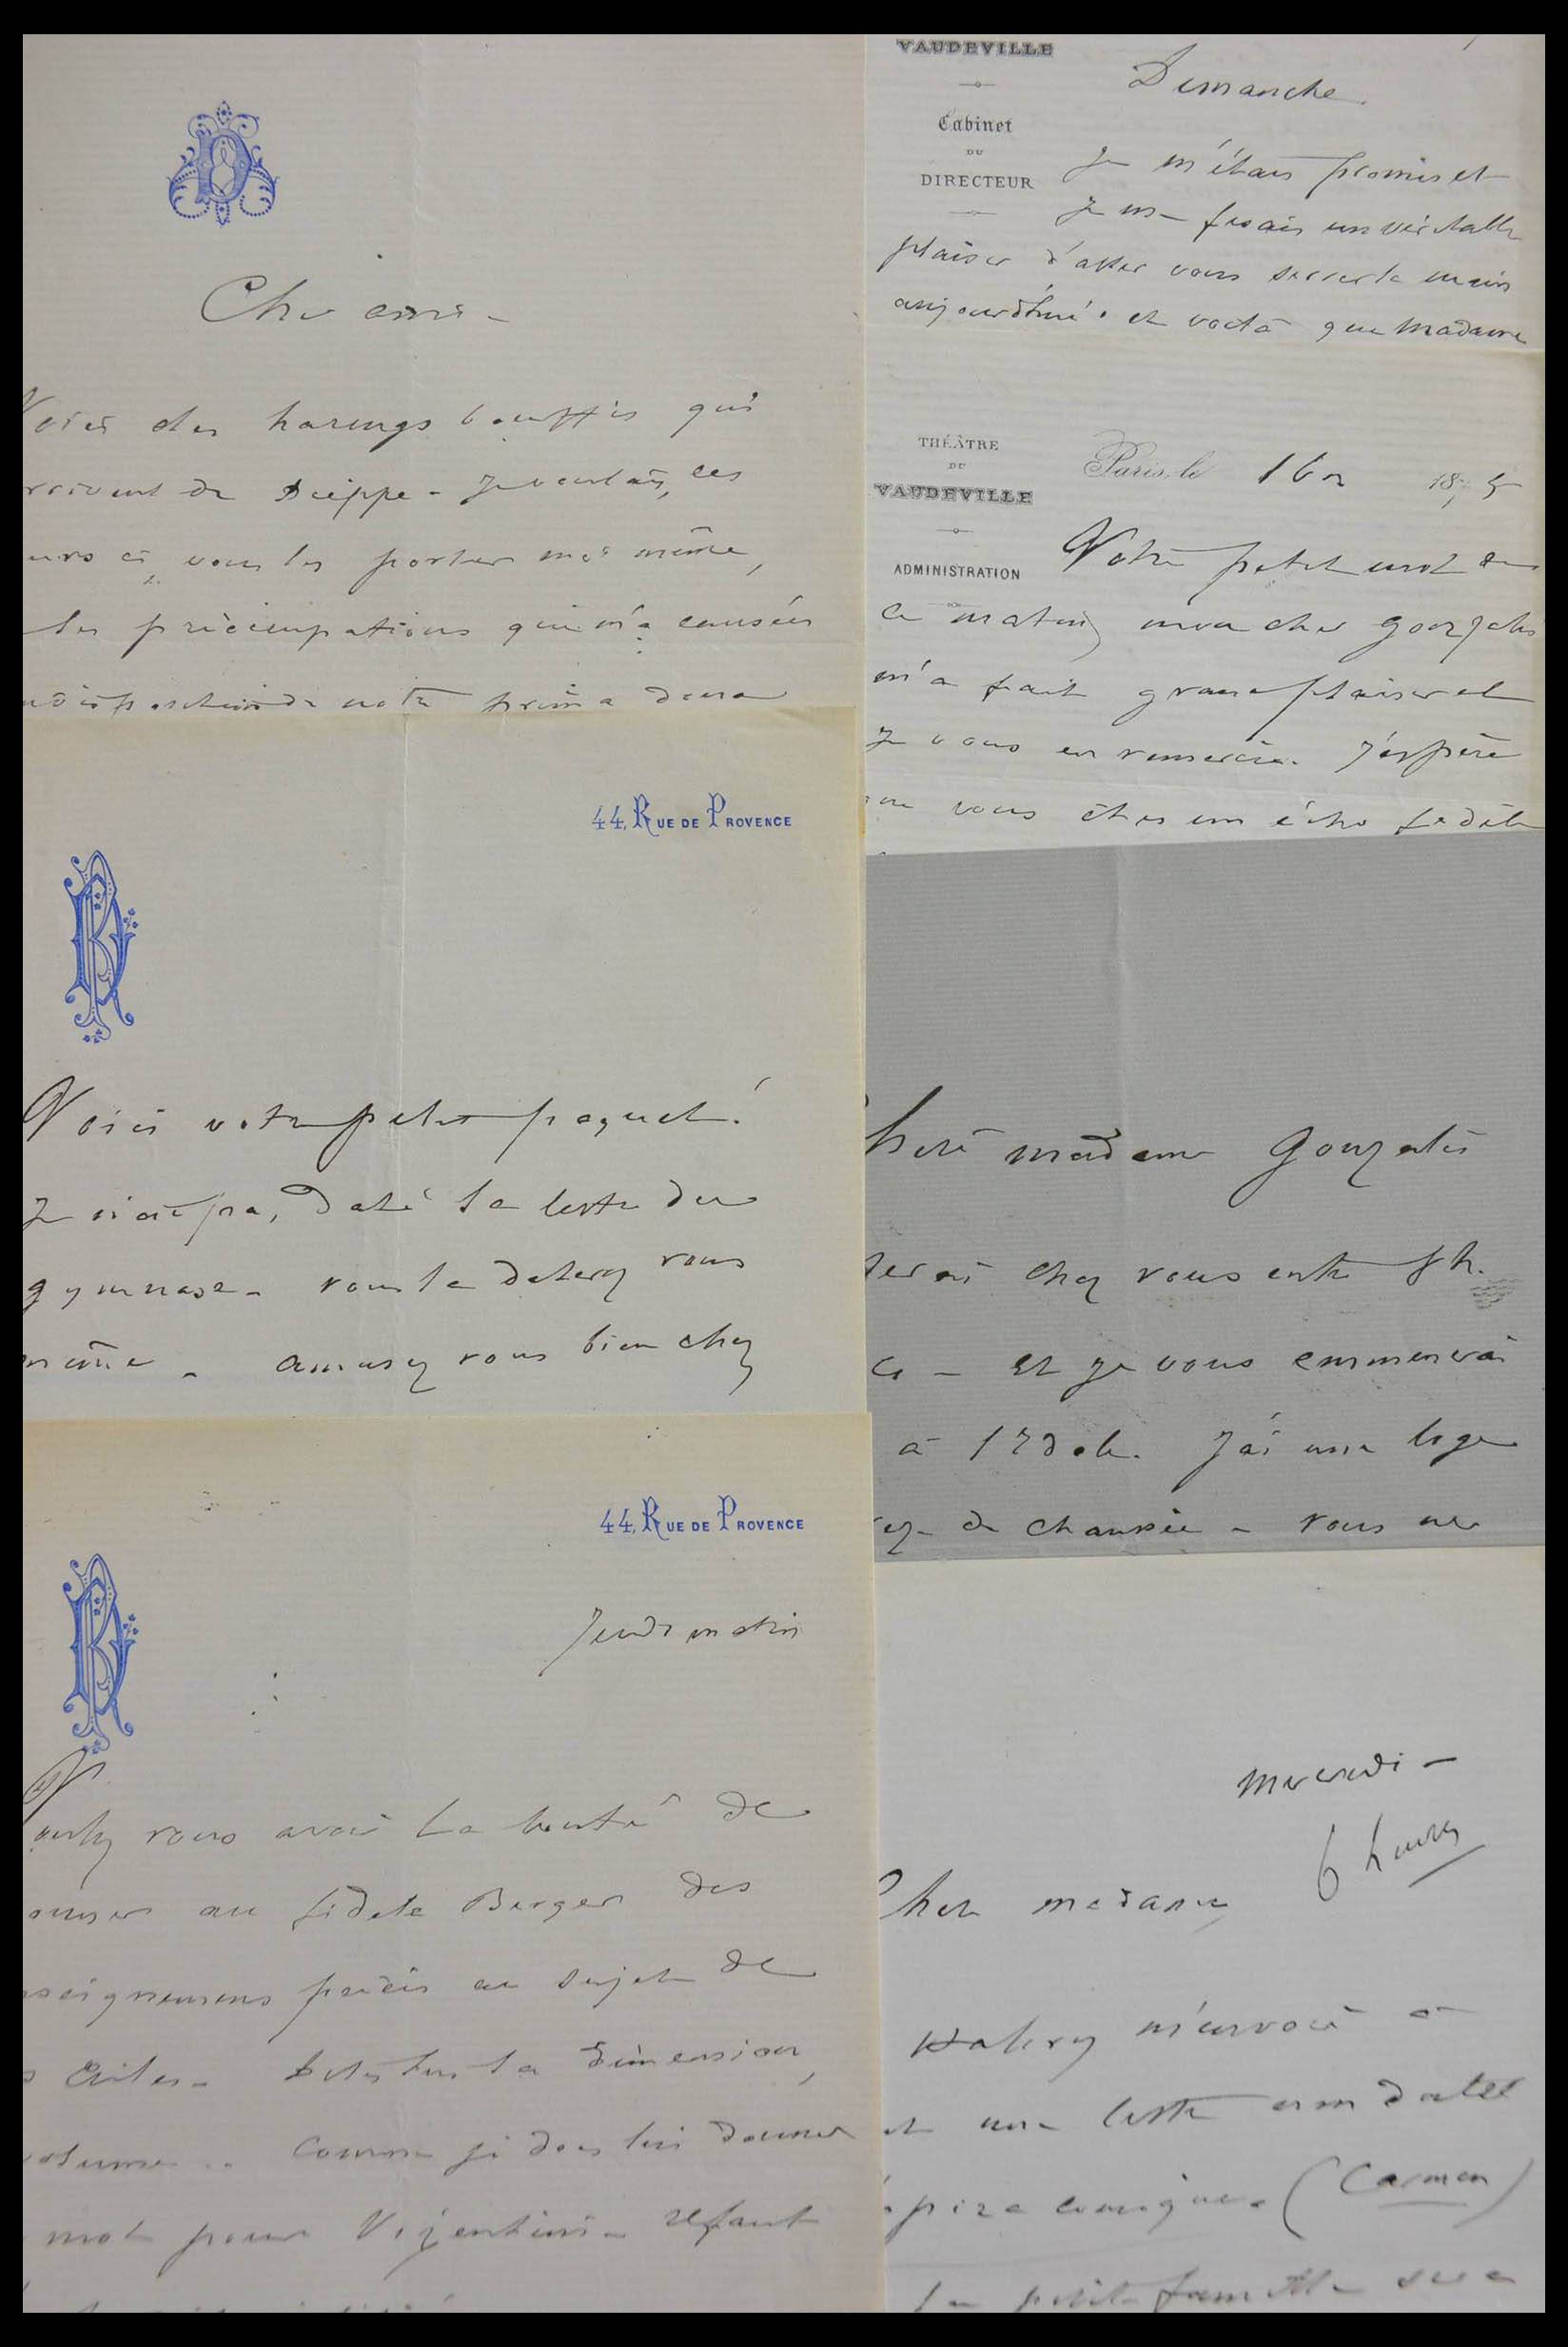 Cher ami -
des harengs bouffis qui
de Dieppe - Je voulais, ces
vous les porter moi même,
les préoccupations que m'a causées
de notre prima dona
44, RUE DE PROVENCE
Voici votre petit paquet.
Je n'ai pas daté la lettre du
gymnase - vous la daterez vous
même - amusez vous bien chez
44, RUE DE PROVENCE
Jeudi matin
vous avoir la bonté de
au fidele Berger des
précis au sujet de
la dimension,
comme je dois lui donner
mot pour Vizentini - Il faut
VAUDEVILLE
Cabinet
DU
DIRECTEUR
Dimanche
Je m'étais promis et
je me fesais un véritable
plaisir d'aller vous serrer la main
aujourd'hui. et voilà que Madame
THÉÂTRE
DU
VAUDEVILLE
ADMINISTRATION
Paris, le 16 1875
Votre petit mot de
ce matin, mon cher Gonzalès
m'a fait grand plaisir et
je vous en remercie. J'espère
vous êtes un écho fidèle
madame Gonzalès
chez vous entre 8 h.
et je vous emmenerai
à l'Idole. J'ai une loge
de chaussée - vous
Mercredi -
6 heures
madame
Halévy m'envoie à
une lettre
comique. (Carmen)
la petite famille